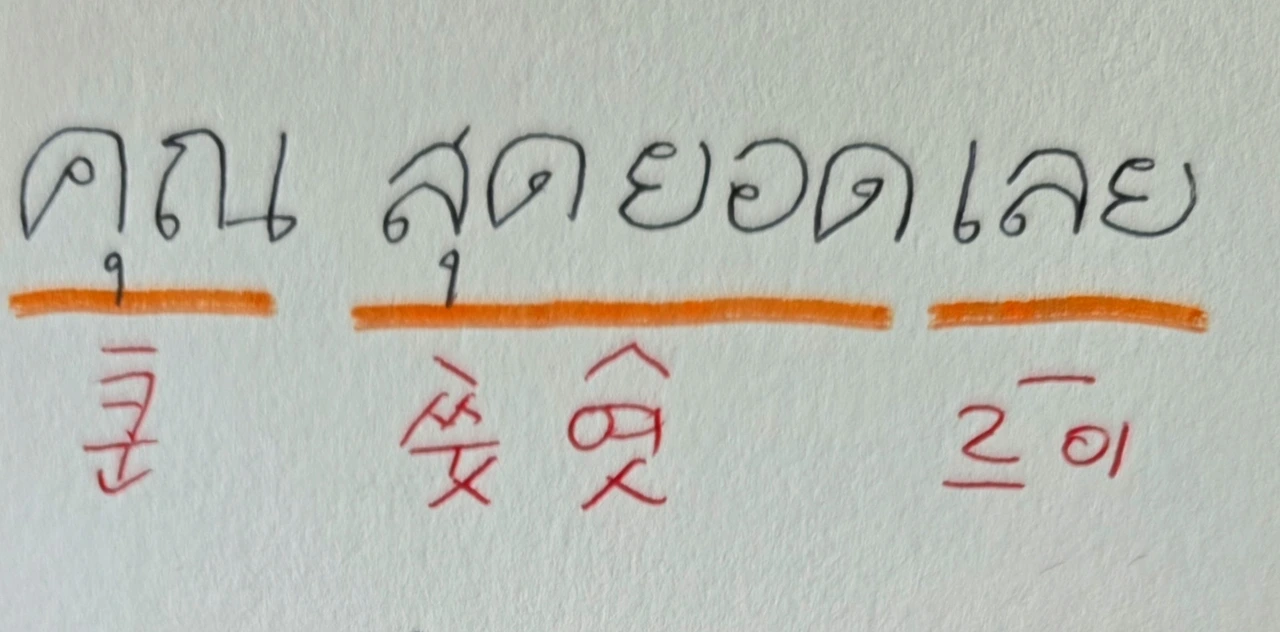 คุณ สุดยอดเลย
쿤 쑷 엿 르 이